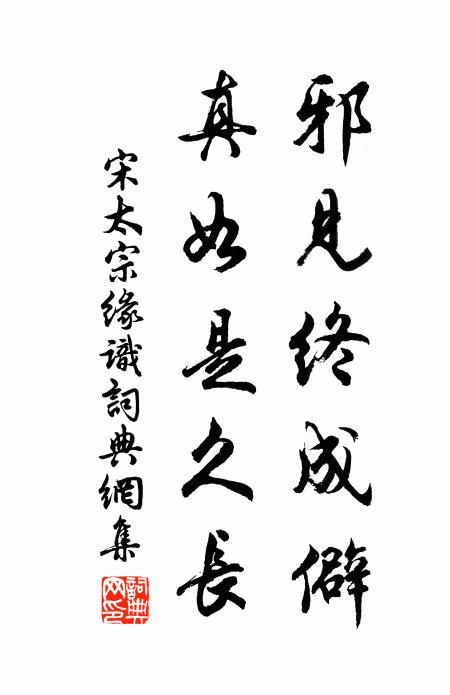 邪見終成僻
真如是久長
宋太宗緣識詞典網集
詞典网印